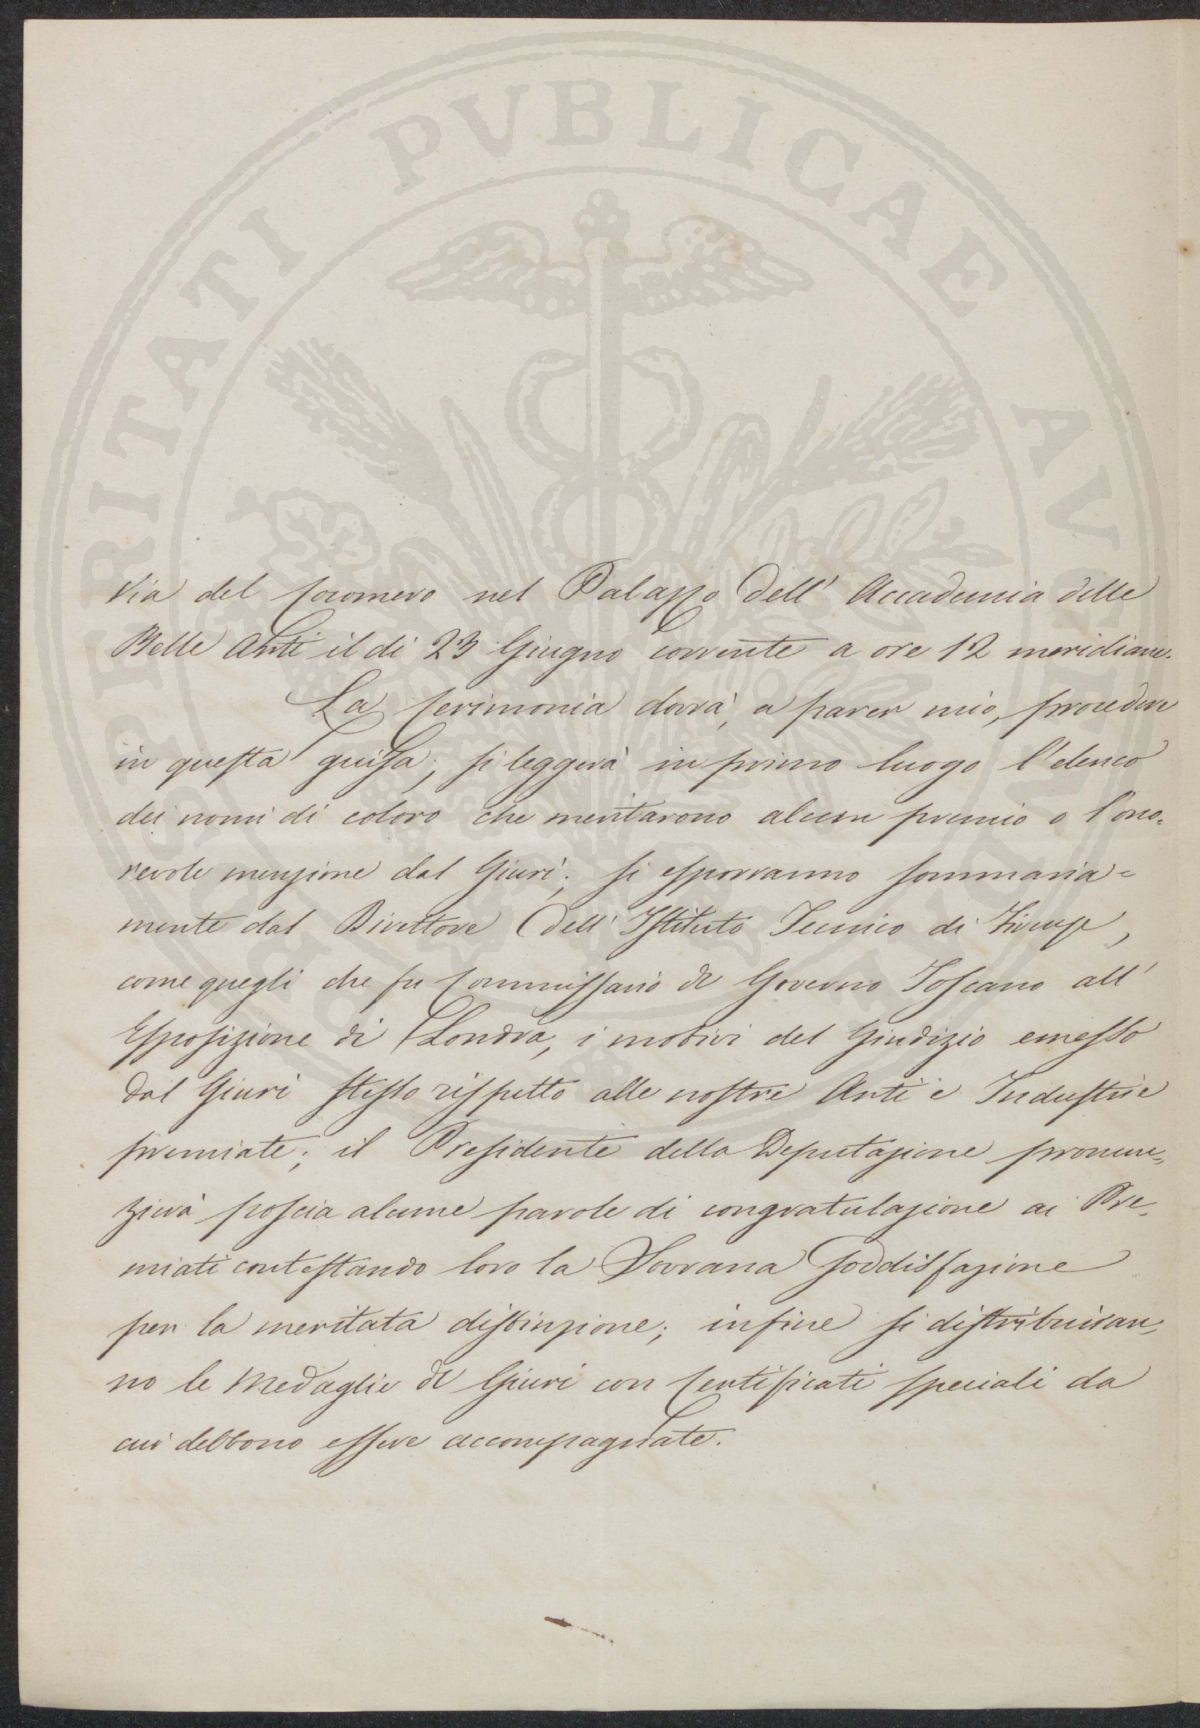 PROSPERITATI PVBLICAE AVGENDAE
Via del Cocomero nel Palazzo dell' Accademia delle
Belle Arti il di 23 Giugno corrente a ore 12 meridiane.
La Cerimonia dovrà, a parer mio, proceder
in questa guisa; si leggerà in primo luogo l'elenco
dei nomi di coloro che meritarono alcun premio o l'ono-
revole menzione dal Giurì; si esporranno sommaria=
mente dal Direttore dell' Istituto Tecnico di Firenze,
come quegli che fu Commissario del Governo Toscano all'
Esposizione di Londra, i motivi del Giudizio emesso
dal Giurì stesso rispetto alle nostre Arti e Industrie
premiate; il Presidente della Deputazione pronun-
zierà poscia alcune parole di congratulazione ai Pre-
miati contestando loro la Sovrana Soddisfazione
per la meritata distinzione; infine si distribuiran-
no le Medaglie del Giurì con Certificati speciali da
cui debbono essere accompagnate.